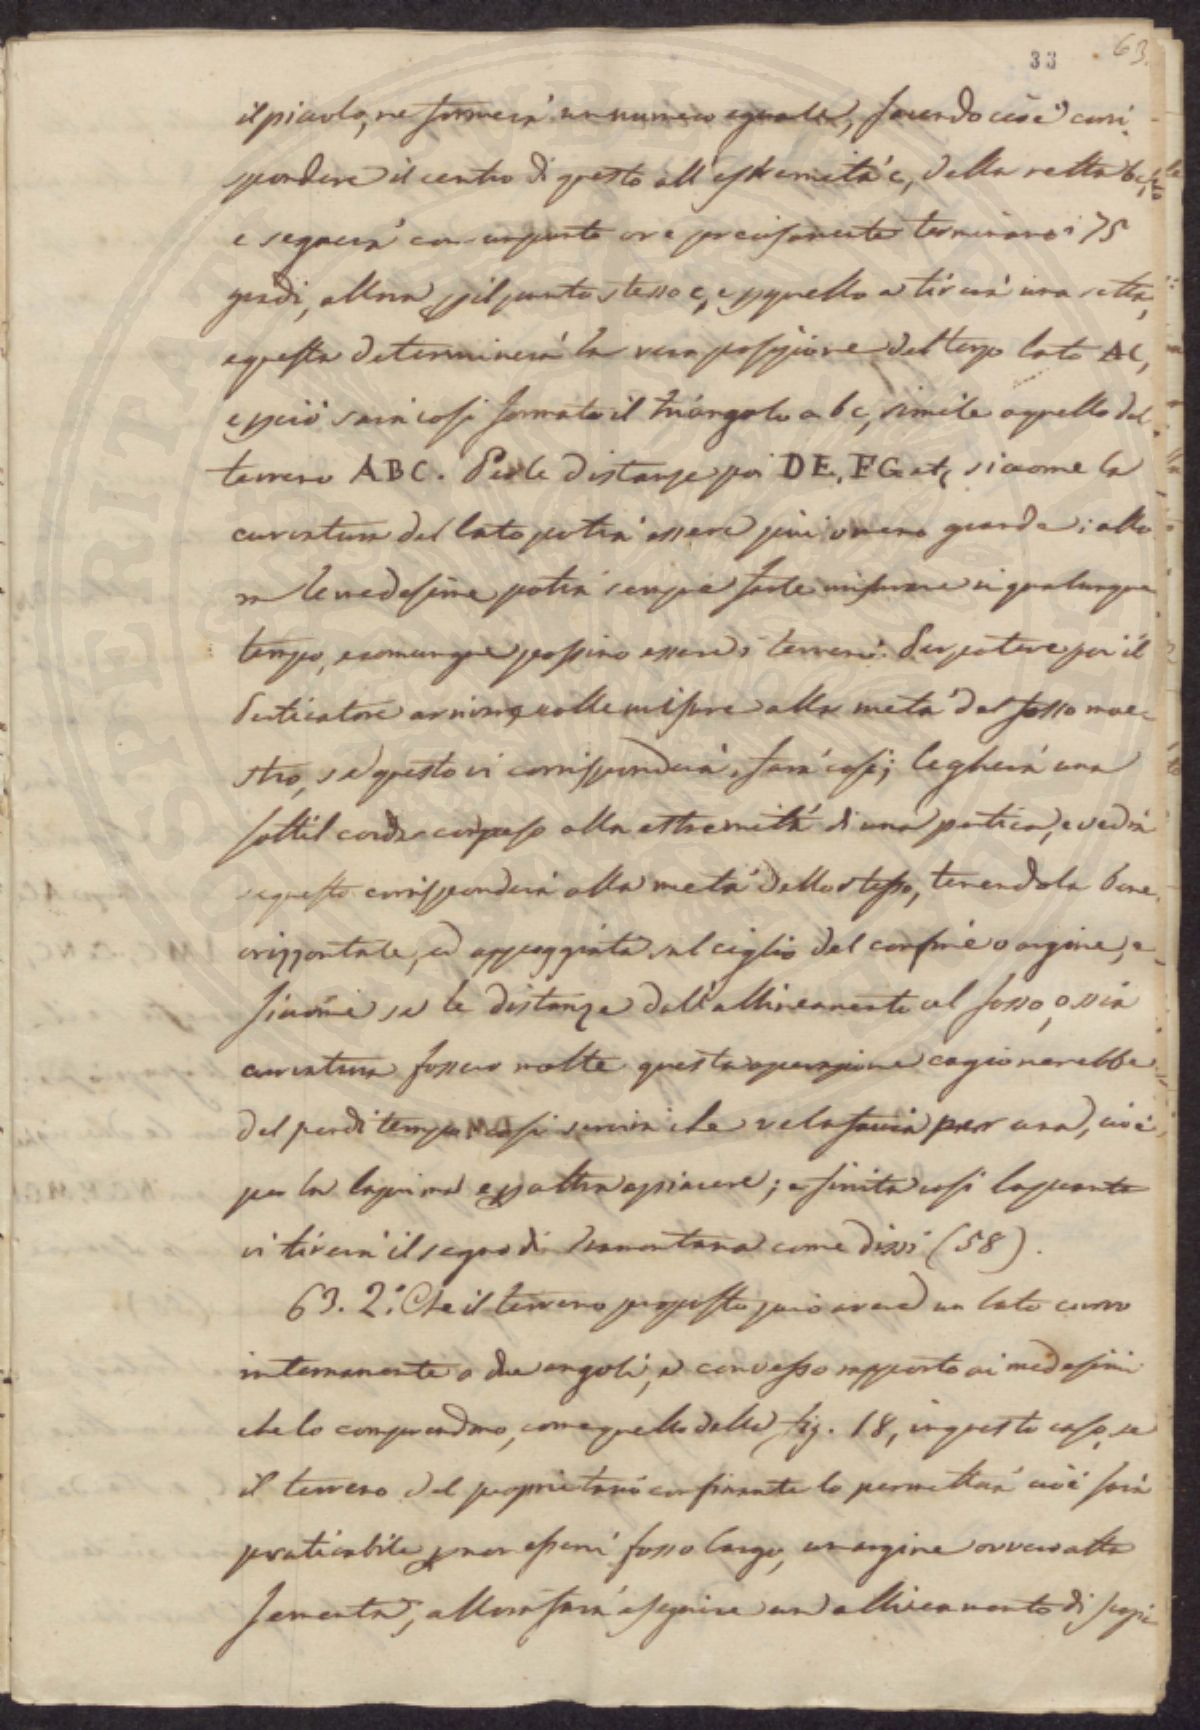 33 63.
il piccolo, ne formerà un numero eguale, facendo cioè corri
spondere il centro di questo all'estremità c, della retta bc,
e segnerà con un punto ove precisamente terminano i 75
gradi, allora p il punto stesso c, e p quello a tirerà una retta,
e questa determinerà la vera posizione del terzo lato AC,
e perciò sarà così formato il triángolo a b c, simile a quello del
terreno ABC. Per le distanze poi DE, FG etc siccome la
curvatura del lato potrà essere più o meno grande; allo
ra le medesime potrà sempre farle misurare in qualunque
tempo, e comunque possino essere i terreni. Per potere poi il
Perticatore arrivare colle misure alla metà del fosso mae-
stro, se questo vi corrisponderà, farà così; legherà una
sottil corda con peso alla estremità di una pertica, e vedrà
se questo corrisponderà alla metà dello stesso, tenendola bene
orizzontale, ed appoggiata sul ciglio del confine o argine, e
siccome se le distanze dall'allineamento al fosso, ossia
curvatura fossero molte questa operazione cagionerebbe
del perditempo, così servirà che ve la faccia per una, cioè
per la la prima e p altra a piacere; e finita così la pianta
vi tirerà il segno di tramontana come dissi (58).
63. 2.° Che il terreno proposto può avere un lato curvo
internamente a due angoli, e convesso rapporto ai medesimi
che lo comprendono, come quello della fig. 18, in questo caso, se
il terreno del proprietario confinante lo permetterà cioè sarà
praticabile p non esservi fosso largo, un argine ovvero alta
sementa, allora farà eseguire un allineamento di scopi